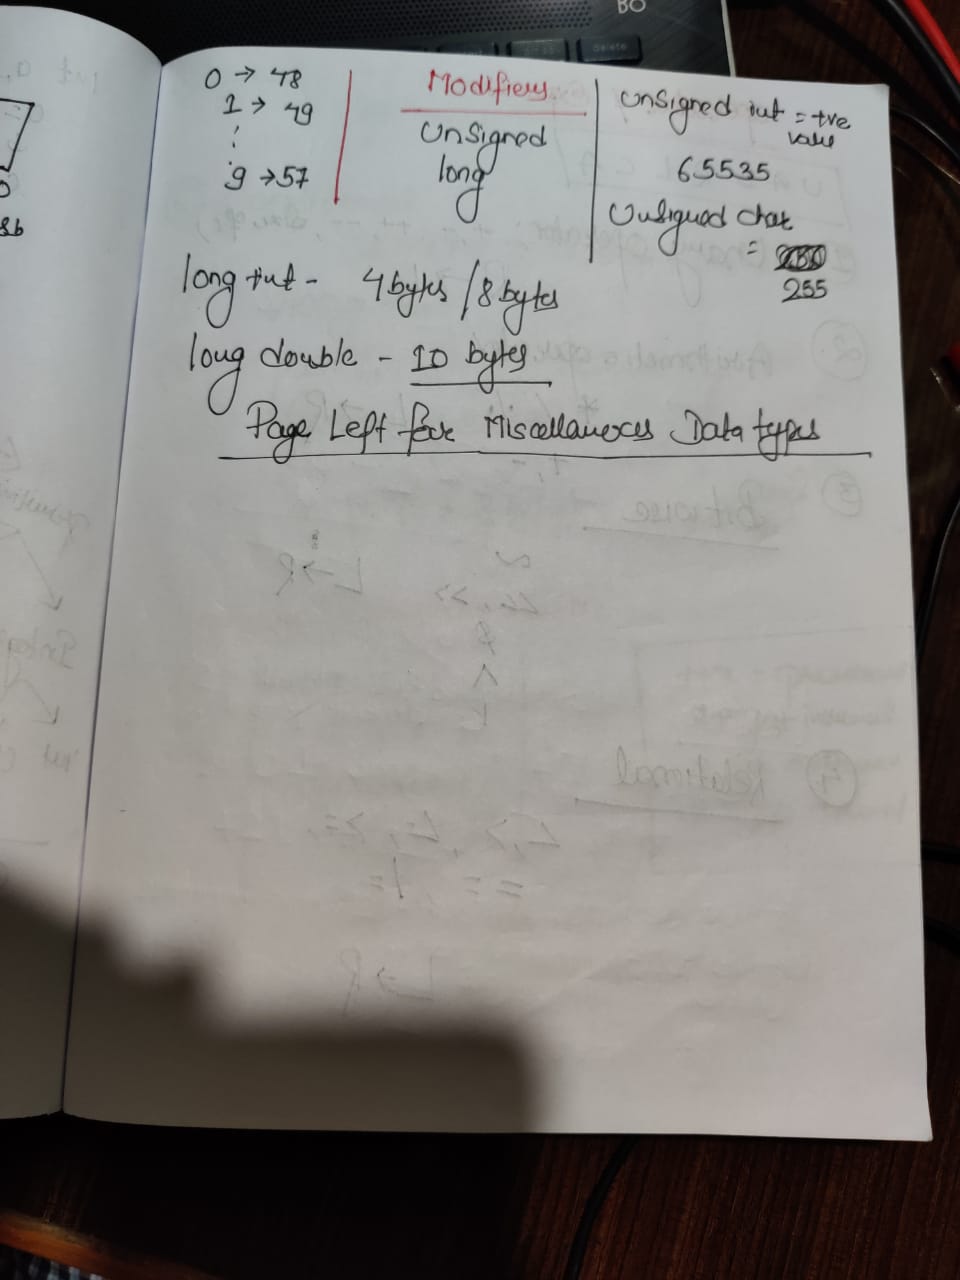 BO
delete
0 → 48
1 → 49
⋮
9 → 57
Modifiers
Unsigned
long
Unsigned int = +ve
value
65535
Unsigned char
=
255
long int - 4 bytes / 8 bytes
long double - 10 bytes
Page Left for Miscellaneous Data types